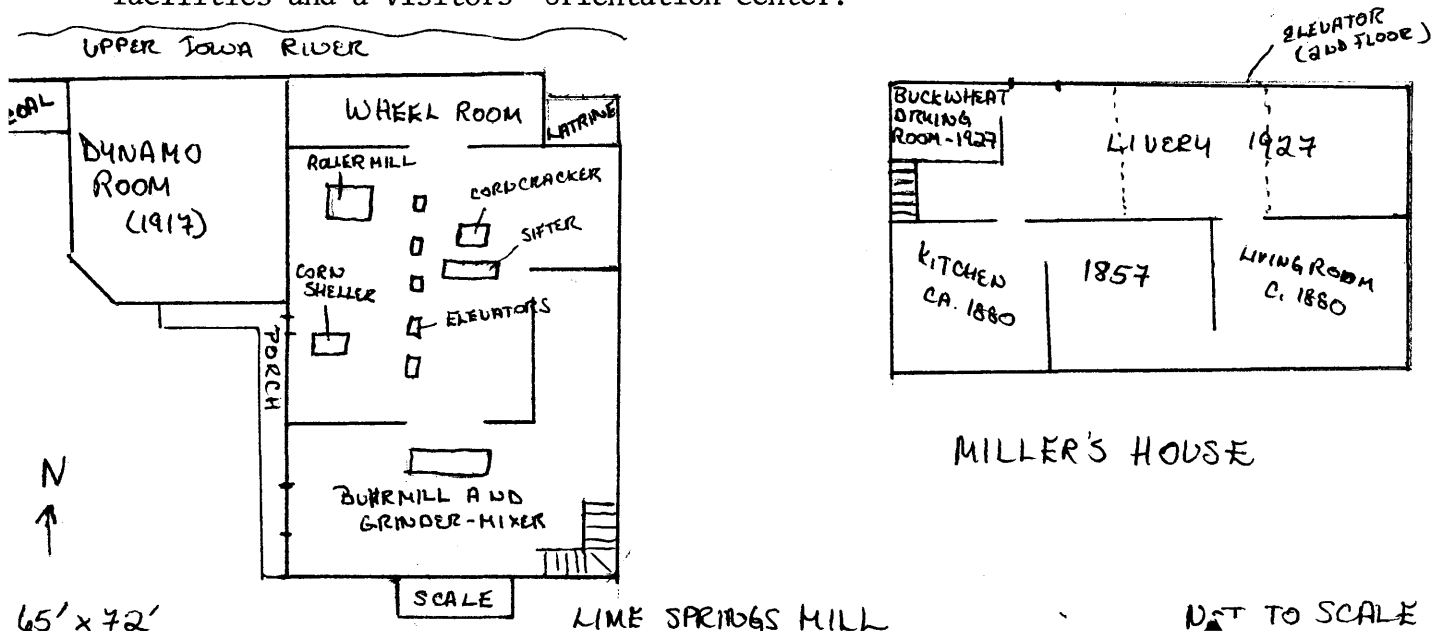 facilities and a visitors' orientation center.
UPPER IOWA RIVER
COAL
DYNAMO
ROOM
(1917)
WHEEL ROOM
LATRINE
ROLLER MILL
CORNCRACKER
SIFTER
CORN
SHELLER
ELEVATORS
PORCH
N
BUHRMILL AND
GRINDER-MIXER
SCALE
65' x 72'
LIME SPRINGS MILL
ELEVATOR
(2ND FLOOR)
BUCKWHEAT
DRYING
ROOM-1927
LIVERY 1927
KITCHEN
CA. 1880
1857
LIVING ROOM
C. 1880
MILLER'S HOUSE
NOT TO SCALE